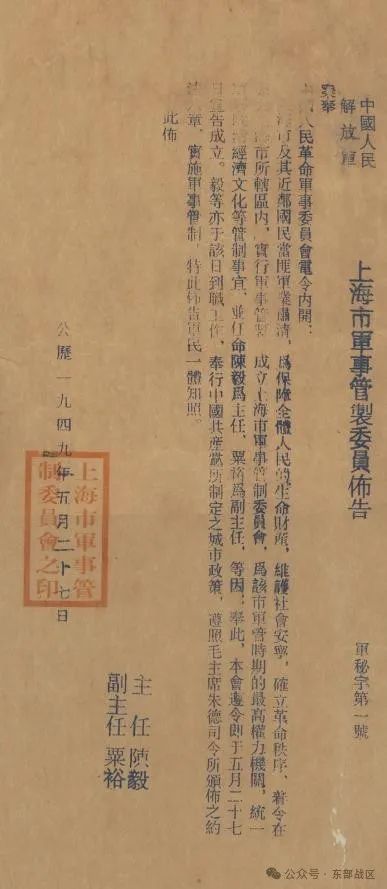 中國人民
解放軍
上海市軍事管製委員佈告
軍秘字第一號
案奉
人民革命軍事委員會電令内開：
海市及其近鄰國民當匪軍業肅清，爲保障全體人民的生命財產，維護社會安寧，確立革命秩序，着令在
海市所轄區内，實行軍事管制，成立上海市軍事管制委員會，爲該市軍管時期的最高權力機關，統一
經濟文化等管制事宜，並任命陳毅爲主任，粟裕爲副主任，等因；奉此，本會遵令即于五月二十七
日宣告成立。毅等亦于該日到職工作，奉行中國共産黨所制定之城市政策，遵照毛主席朱德司令所頒佈之約
章，實施軍事管制，特此佈告軍民一體知照。
此佈
主任 陳毅
副主任 粟裕
公歷一九四九年五月二十七日
上海市軍事管
制委員會之印
公众号·东部战区